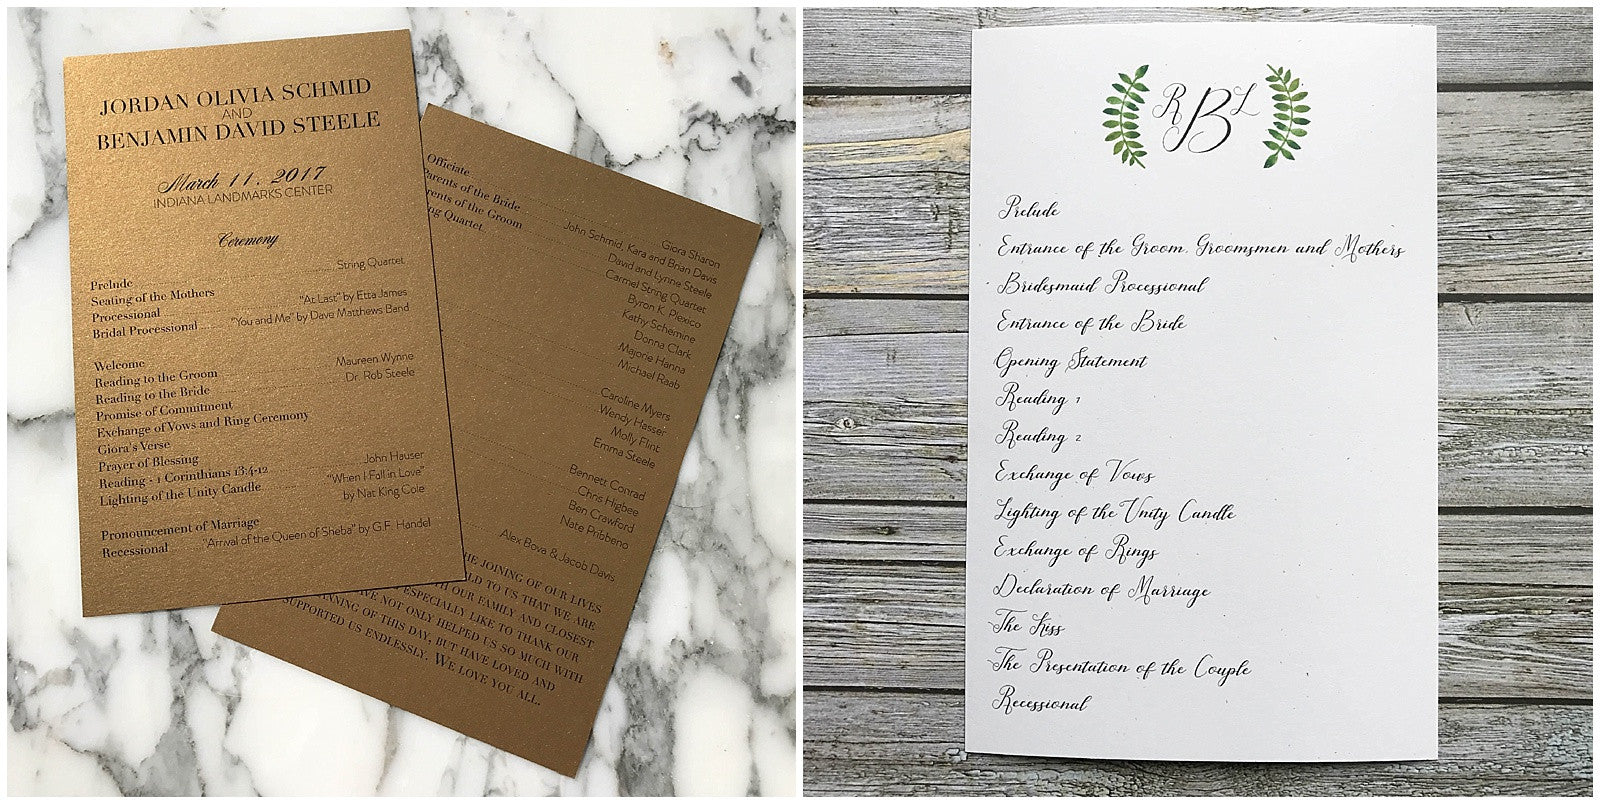 JORDAN OLIVIA SCHMID
AND
BENJAMIN DAVID STEELE
March 11, 2017
INDIANA LANDMARKS CENTER
Ceremony
Prelude String Quartet
Seating of the Mothers
Processional "At Last" by Etta James
Bridal Processional "You and Me" by Dave Matthews Band
Welcome
Reading to the Groom Maureen Wynne
Reading to the Bride Dr. Rob Steele
Promise of Commitment
Exchange of Vows and Ring Ceremony
Giora's Verse
Prayer of Blessing
Reading - 1 Corinthians 13:4-12 John Hauser
Lighting of the Unity Candle "When I Fall in Love"
by Nat King Cole
Pronouncement of Marriage
Recessional "Arrival of the Queen of Sheba" by G.F. Handel
Officiate Giora Sharon
Parents of the Bride John Schmid, Kara and Brian Davis
rents of the Groom David and Lynne Steele
ng Quartet Carmel String Quartet
Byron K. Plexico
Kathy Schemine
Donna Clark
Majorie Hanna
Michael Raab
Caroline Myers
Wendy Hasser
Molly Flint
Emma Steele
Bennett Conrad
Chris Higbee
Ben Crawford
Nate Pribbeno
Alex Bova & Jacob Davis
HE JOINING OF OUR LIVES
LD TO US THAT WE ARE
H OUR FAMILY AND CLOSEST
ESPECIALLY LIKE TO THANK OUR
VE NOT ONLY HELPED US SO MUCH WITH
NNING OF THIS DAY, BUT HAVE LOVED AND
SUPPORTED US ENDLESSLY. WE LOVE YOU ALL.
R B L
Prelude
Entrance of the Groom, Groomsmen and Mothers
Bridesmaid Processional
Entrance of the Bride
Opening Statement
Reading 1
Reading 2
Exchange of Vows
Lighting of the Unity Candle
Exchange of Rings
Declaration of Marriage
The Kiss
The Presentation of the Couple
Recessional